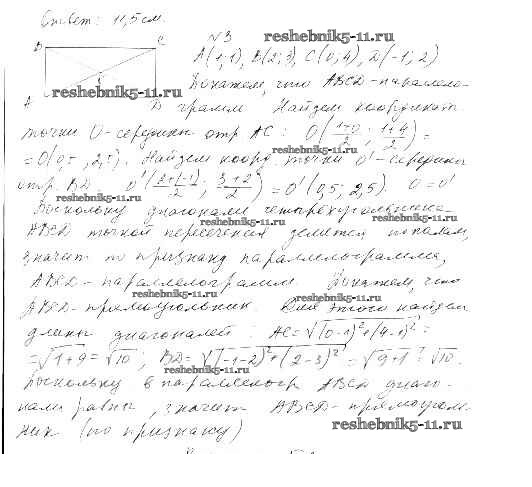 Ответ: 11,5 см.
N3
reshebnik5-11.ru
B C
A(1;1), B(2;3), C(0;4), D(-1;2)
Докажем, что ABCD - паралело-
reshebnik5-11.ru
A D грамм Найдем координаты
точки O - середины отр AC: O(1+0/2; 1+4/2) =
= O(0,5; 2,5). Найдем коорд. точки O' - середины
отр. BD O'(2+(-1)/2; 3+2/2) = O'(0,5; 2,5). O = O'
Поскольку диагонали четырехугольника
ABCD точкой пересечения делятся пополам,
значит по признаку параллелограмма,
ABCD - параллелограмм. Докажем, что
reshebnik5-11.ru
ABCD - прямоугольник. Для этого найдем
длины диагоналей: AC = √(0-1)²+(4-1)² =
= √1+9 = √10; BD = √(-1-2)²+(2-3)² = √9+1 = √10.
reshebnik5-11.ru
Поскольку в параллелогр ABCD диаго-
нали равны, значит ABCD - прямоугол-
ник (по признаку)
reshebnik5-11.ru